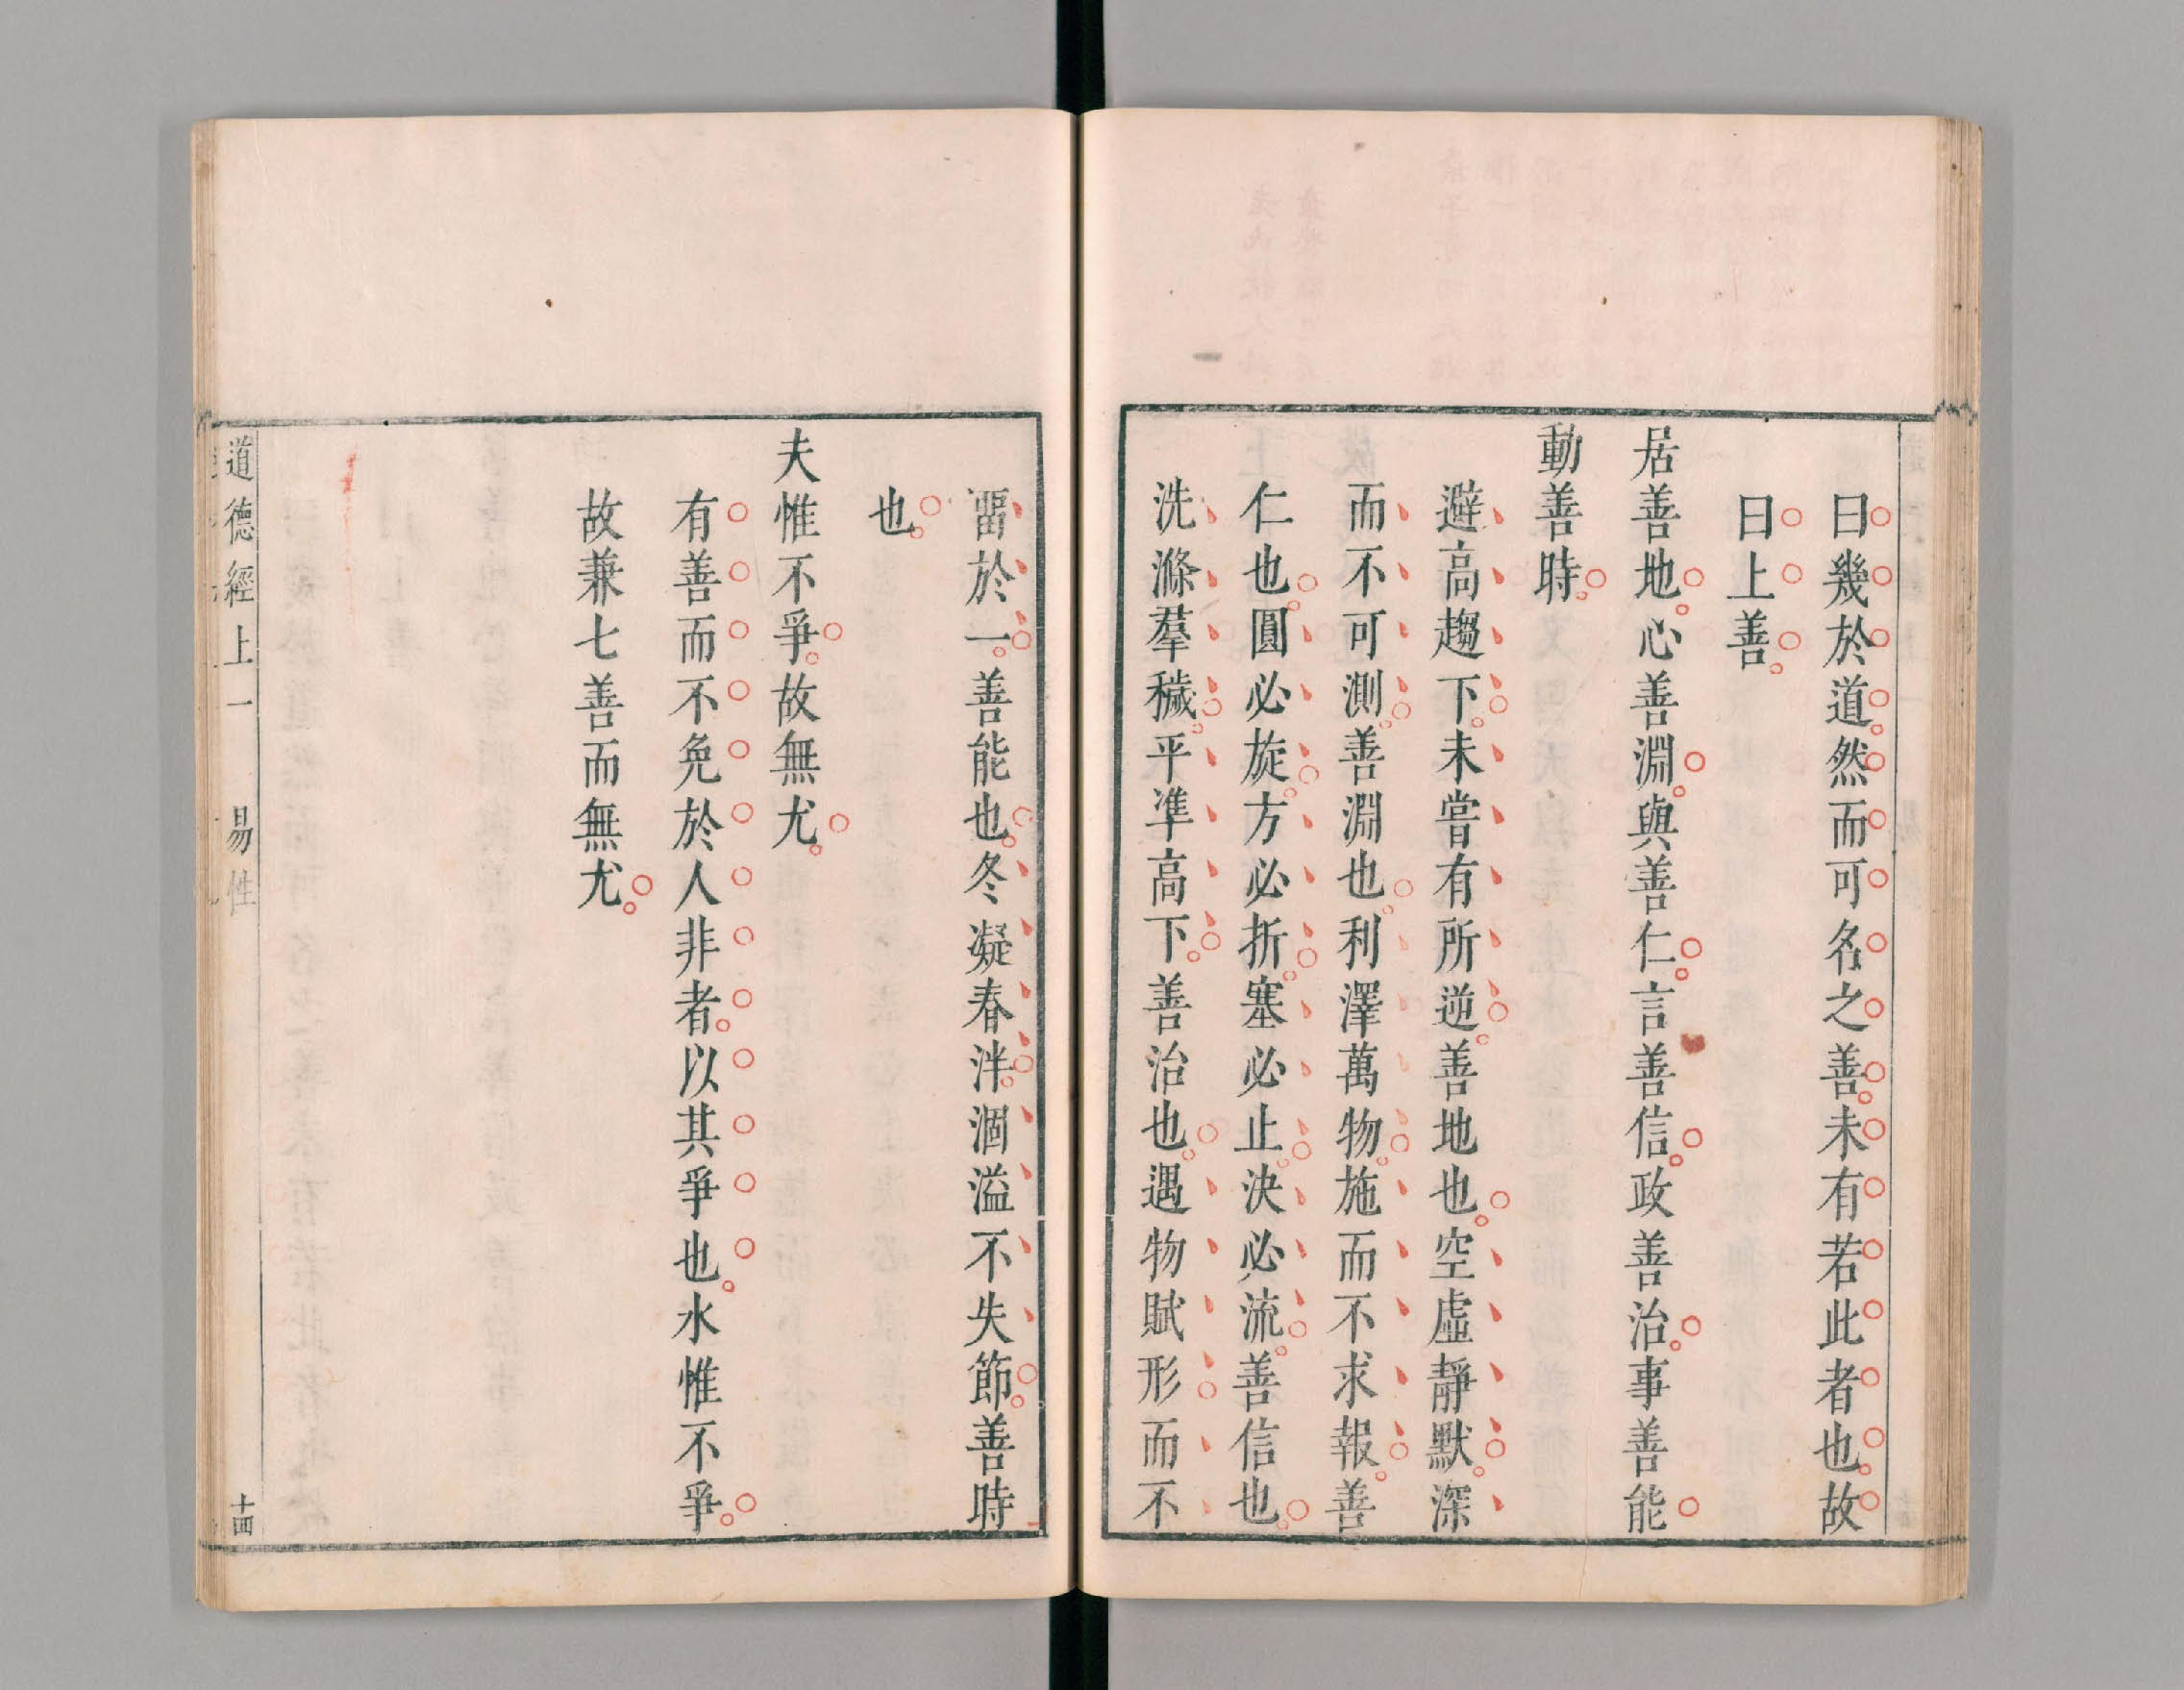 曰幾於道然而可名之善未有若此者也故
曰上善
居善地心善淵與善仁言善信政善治事善能
動善時
避高趨下未嘗有所逆善地也空虛靜默深
而不可測善淵也利澤萬物施而不求報善
仁也圓必旋方必折塞必止決必流善信也
洗滌羣穢平準高下善治也遇物賦形而不
畱於一善能也冬凝春泮涸溢不失節善時
也
夫惟不爭故無尤
有善而不免於人非者以其爭也水惟不爭
故兼七善而無尤
道德經上一 易性
十四